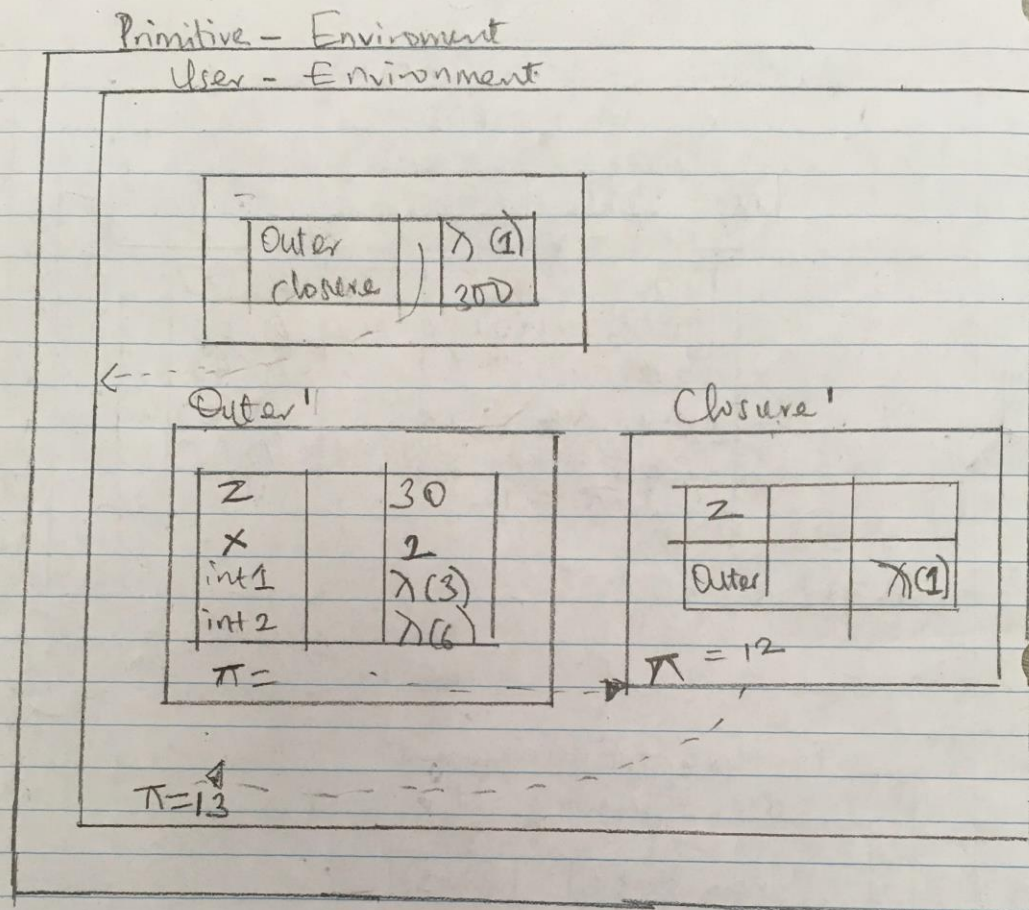 Primitive - Enviroment
User - Environment
Outer λ(1)
closure 300
Outer' Closure'
z 30
x 2
int1 λ(3)
int2 λ(6)
π=
z
Outer λ(1)
π = 12
π=13